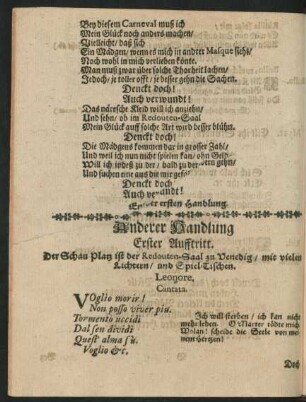 Bey diesem Carneval muß ich
Mein Glück noch anders machen/
Vielleicht/ daß sich
Ein Mädgen/ wenn es mich in andrer Masque sieht/
Noch wohl in mich verlieben könte.
Man muß zwar über solche Thorheit lachen/
Jedoch/ je toller offt/ je besser gehn die Sachen.
Denckt doch!
Auch verwundt!
Das närrsche Kleid will ich anziehn/
Und sehn/ ob im Redouten-Saal
Mein Glück auff solche Art wird besser blühn.
Denckt doch!
Die Mädgens kommen dar in grosser Zahl/
Und weil ich nun nicht spielen kan/ ohn Geld/
Will ich jedoch zu der/ bald zu der gehn/
Und suchen eine aus die mir
Denckt doch
Auch
ersten Handlung.
Anderer Handlung
Erster Aufftritt.
Der Schau Platz ist der Redouten-Saal zu Venedig/ mit vielen
Lichtern/ und Spiel-Tischen.
Leonore.
Cantata.
Voglio morir!
Non posso viver piu.
Tormento uccidi
Dal sen dividi
Quest' alma sù.
Voglio &c.
Ich will sterben/ ich kan nicht
mehr leben. O Marter tödte mich
Wolan! scheide die Seele von mei-
nem Hertzen!
Doch